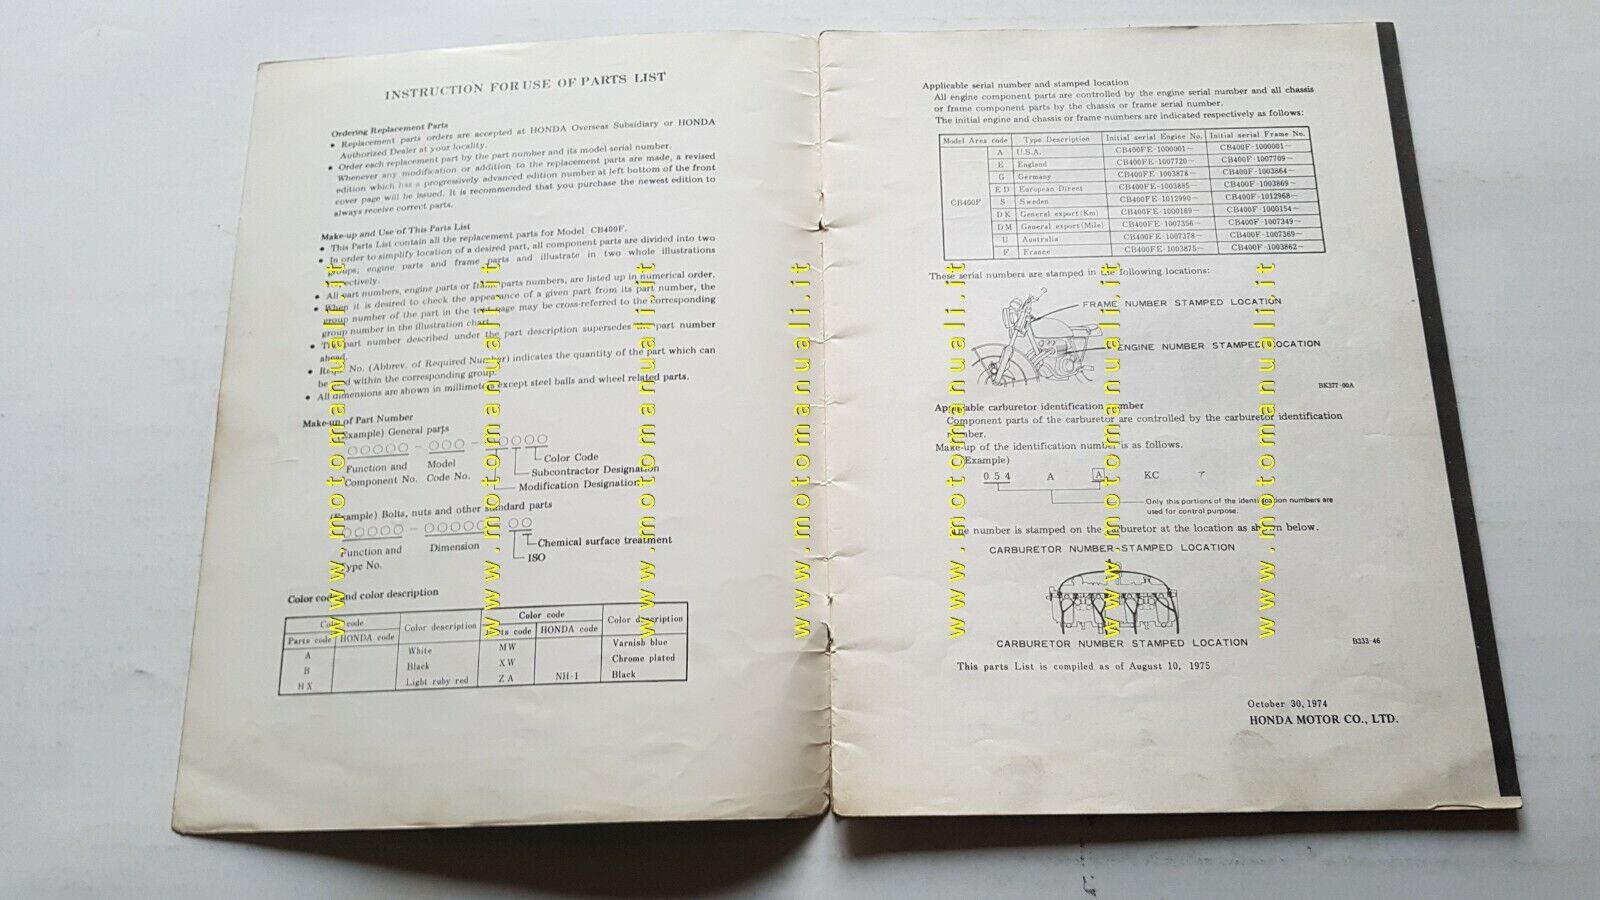 INSTRUCTION FOR USE OF PARTS LIST
Ordering Replacement Parts
• Replacement parts orders are accepted at HONDA Overseas Subsidiary or HONDA
Authorized Dealer at your locality.
• Order each replacement part by the part number and its model serial number.
Whenever any modification or addition to the replacement parts are made, a revised
edition which has a progressively advanced edition number at left bottom of the front
cover page will be issued. It is recommended that you purchase the newest edition to
always receive correct parts.
Make-up and Use of This Parts List
• This Parts List contain all the replacement parts for Model CB400F.
• In order to simplify location of a desired part, all component parts are divided into two
groups; engine parts and frame parts and illustrate in two whole illustrations
respectively.
• All part numbers, engine parts or frame parts numbers, are listed up in numerical order.
• When it is desired to check the appearance of a given part from its part number, the
group number of the part in the text page may be cross-referred to the corresponding
group number in the illustration chart.
• The part number described under the part description supersedes the part number
ahead.
• Reqd. No. (Abbrev. of Required Number) indicates the quantity of the part which can
be used within the corresponding group.
• All dimensions are shown in millimeters except steel balls and wheel related parts.
Make-up of Part Number
(Example) General parts
○○○○○ - ○○○ - ○○○○○
Color Code
Function and Model Subcontractor Designation
Component No. Code No. Modification Designation
(Example) Bolts, nuts and other standard parts
○○○○○ - ○○○○○ - ○○
Function and Dimension Chemical surface treatment
Type No. ISO
Color code and color description
Color code Color description Color code Color description
Parts code HONDA code Parts code HONDA code
A White MW Varnish blue
B Black XW Chrome plated
HX Light ruby red ZA NH-1 Black
Applicable serial number and stamped location
All engine component parts are controlled by the engine serial number and all chassis
or frame component parts by the chassis or frame serial number.
The initial engine and chassis or frame numbers are indicated respectively as follows:
Model Area code Type Description Initial serial Engine No. Initial serial Frame No.
CB400F
A U.S.A. CB400FE-1000001~ CB400F-1000001~
E England CB400FE-1007720~ CB400F-1007709~
G Germany CB400FE-1003878~ CB400F-1003864~
ED European Direct CB400FE-1003885~ CB400F-1003869~
S Sweden CB400FE-1012990~ CB400F-1012968~
DK General export(Km) CB400FE-1000169~ CB400F-1000154~
DM General export(Mile) CB400FE-1007356~ CB400F-1007349~
U Australia CB400FE-1007378~ CB400F-1007369~
F France CB400FE-1003875~ CB400F-1003862~
These serial numbers are stamped in the following locations:
FRAME NUMBER STAMPED LOCATION
ENGINE NUMBER STAMPED LOCATION
BK377-00A
Applicable carburetor identification number
Component parts of the carburetor are controlled by the carburetor identification
number.
Make-up of the identification number is as follows.
(Example)
054 A A KC
Only this portions of the identification numbers are
used for control purpose.
The number is stamped on the carburetor at the location as shown below.
CARBURETOR NUMBER STAMPED LOCATION
CARBURETOR NUMBER STAMPED LOCATION
B333-46
This parts List is compiled as of August 10, 1975
October 30, 1974
HONDA MOTOR CO., LTD.
www.motomanuali.it
www.motomanuali.it
www.motomanuali.it
www.motomanuali.it
www.motomanuali.it
www.motomanuali.it
www.motomanuali.it